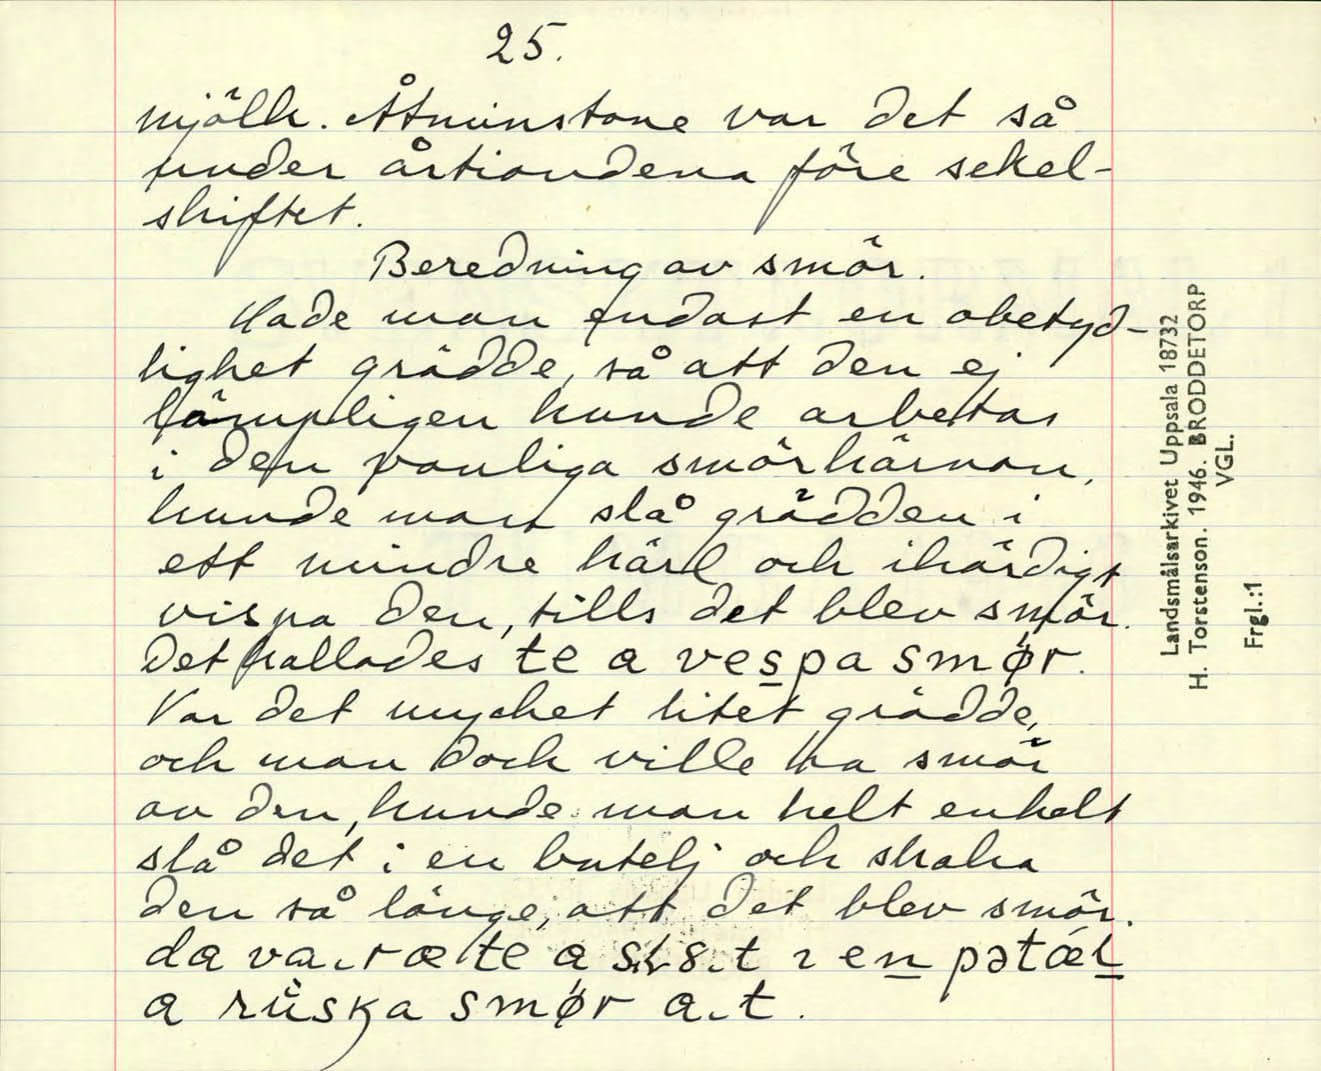 25.
mjölk. Åtminstone var det så
under årtiondena före sekel-
skiftet.
Beredning av smör.
Hade man endast en obetyd-
lighet grädde, så att den ej
lämpligen kunde arbetas
i den vanliga smörkärnan,
kunde man slå grädden i
ett mindre kärl och ihärdigt
vispa den, tills det blev smör.
Det kallades te a vespa smør.
Var det mycket litet grädde,
och man dock ville ha smör
av den, kunde man helt enkelt
slå det i en butelj och skaka
den så länge, att det blev smör.
da va
a smør
Landsmålsarkivet Uppsala 18732
H. Torstenson. 1946. BRODDETORP
VGL.
Frgl.:1